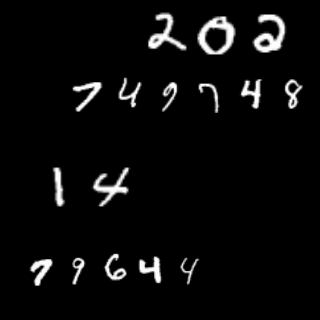 202
749748
14
79644